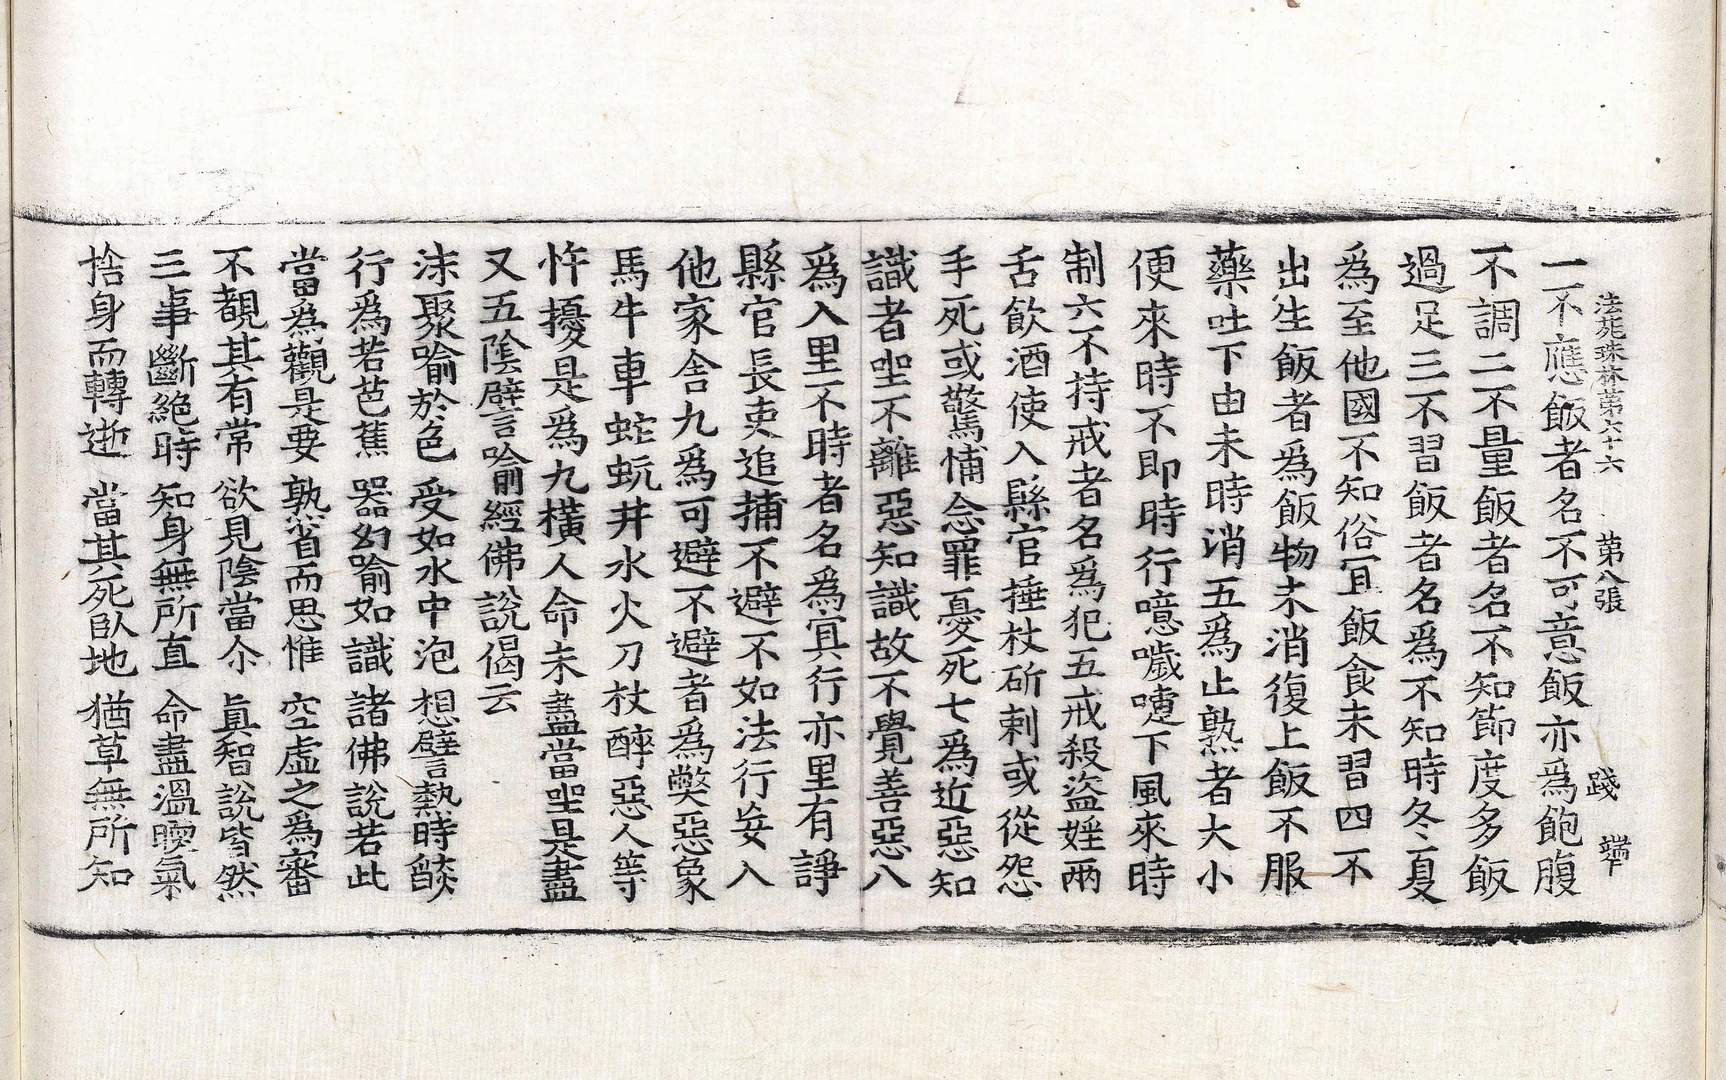 法苑珠林第六十六 第八張 踐 端
一不應飯者名不可意飯亦爲飽腹
不調二不量飯者名不知節度多飯
過足三不習飯者名爲不知時冬夏
爲至他國不知俗冝飯食未習四不
出生飯者爲飯物未消復上飯不服
藥吐下由未時消五爲止熟者大小
便來時不即時行噫噦嚏下風來時
制六不持戒者名爲犯五戒殺盜婬兩
舌飲酒使入縣官捶杖斫刺或從怨
手死或驚怖念罪憂死七爲近惡知
識者坐不離惡知識故不覺善惡八
爲入里不時者名爲冥行亦里有諍
縣官長吏追捕不避不如法行妄入
他家舍九爲可避不避者爲獘惡象
馬牛車蛇蚖井水火刀杖醉惡人等
忤擾是爲九橫人命未盡當坐是盡
又五陰譬喻經佛說偈云
沫聚喻於色 受如水中泡 想譬熱時燄
行爲若芭蕉 噐幻喻如識 諸佛說若此
當爲觀是要 熟省而思惟 空虛之爲審
不覩其有常 欲見陰當尒 眞智說皆然
三事斷絕時 知身無所直 命盡溫曘氣
捨身而轉逝 當其死臥地 猶草無所知